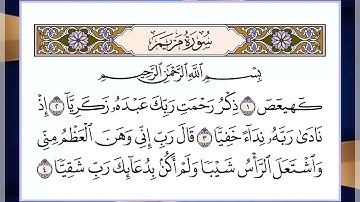 سُورَةُ مَرْيَمَ
بِسْمِ اللَّهِ الرَّحْمَٰنِ الرَّحِيمِ
كٓهيعٓصٓ ١ ذِكْرُ رَحْمَتِ رَبِّكَ عَبْدَهُ زَكَرِيَّآ ٢ إِذْ
نَادَىٰ رَبَّهُ نِدَآءً خَفِيًّا ٣ قَالَ رَبِّ إِنِّي وَهَنَ الْعَظْمُ مِنِّي
وَاشْتَعَلَ الرَّأْسُ شَيْبًا وَلَمْ أَكُنْ بِدُعَآئِكَ رَبِّ شَقِيًّا ٤